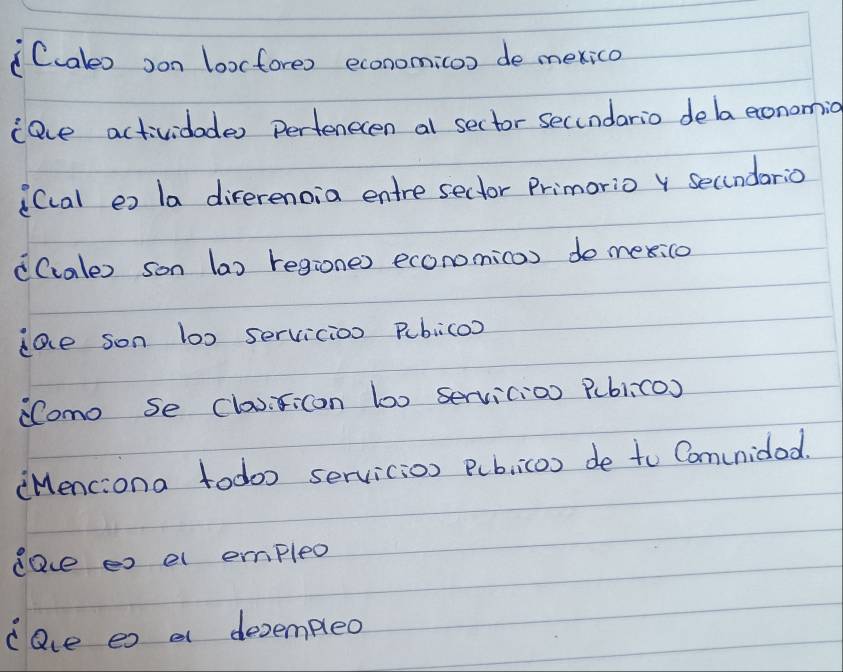 ¿Cuales son losctores economicos de mexico
¿Que actividades Pertenecen al sector secundario de la economia
¿Cual es la diferencia entre sector Primario y secundario
¿Cuales son las regiones economicas de mexico
¿Que son los servicios Publicos
¿Como se clasifican los servicios Publicos
¿Menciona todos servicios Publicos de tu Comunidad.
¿Que es el empleo
¿Que es el desempleo